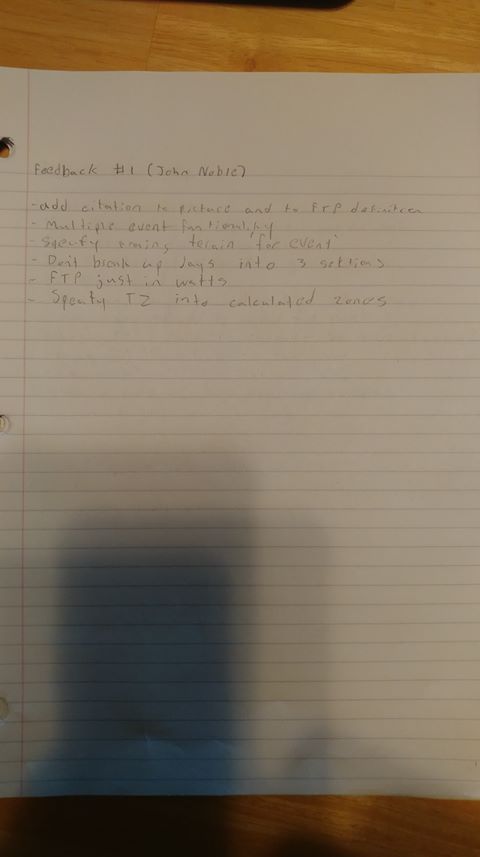 Feedback #1 (John Noble)
- add citation to picture and to FTP definition
- Multiple event functionality
- Specify terain for event
- Don't break up days into 3 sections
- FTP just in watts
- Specify TZ into calculated zones